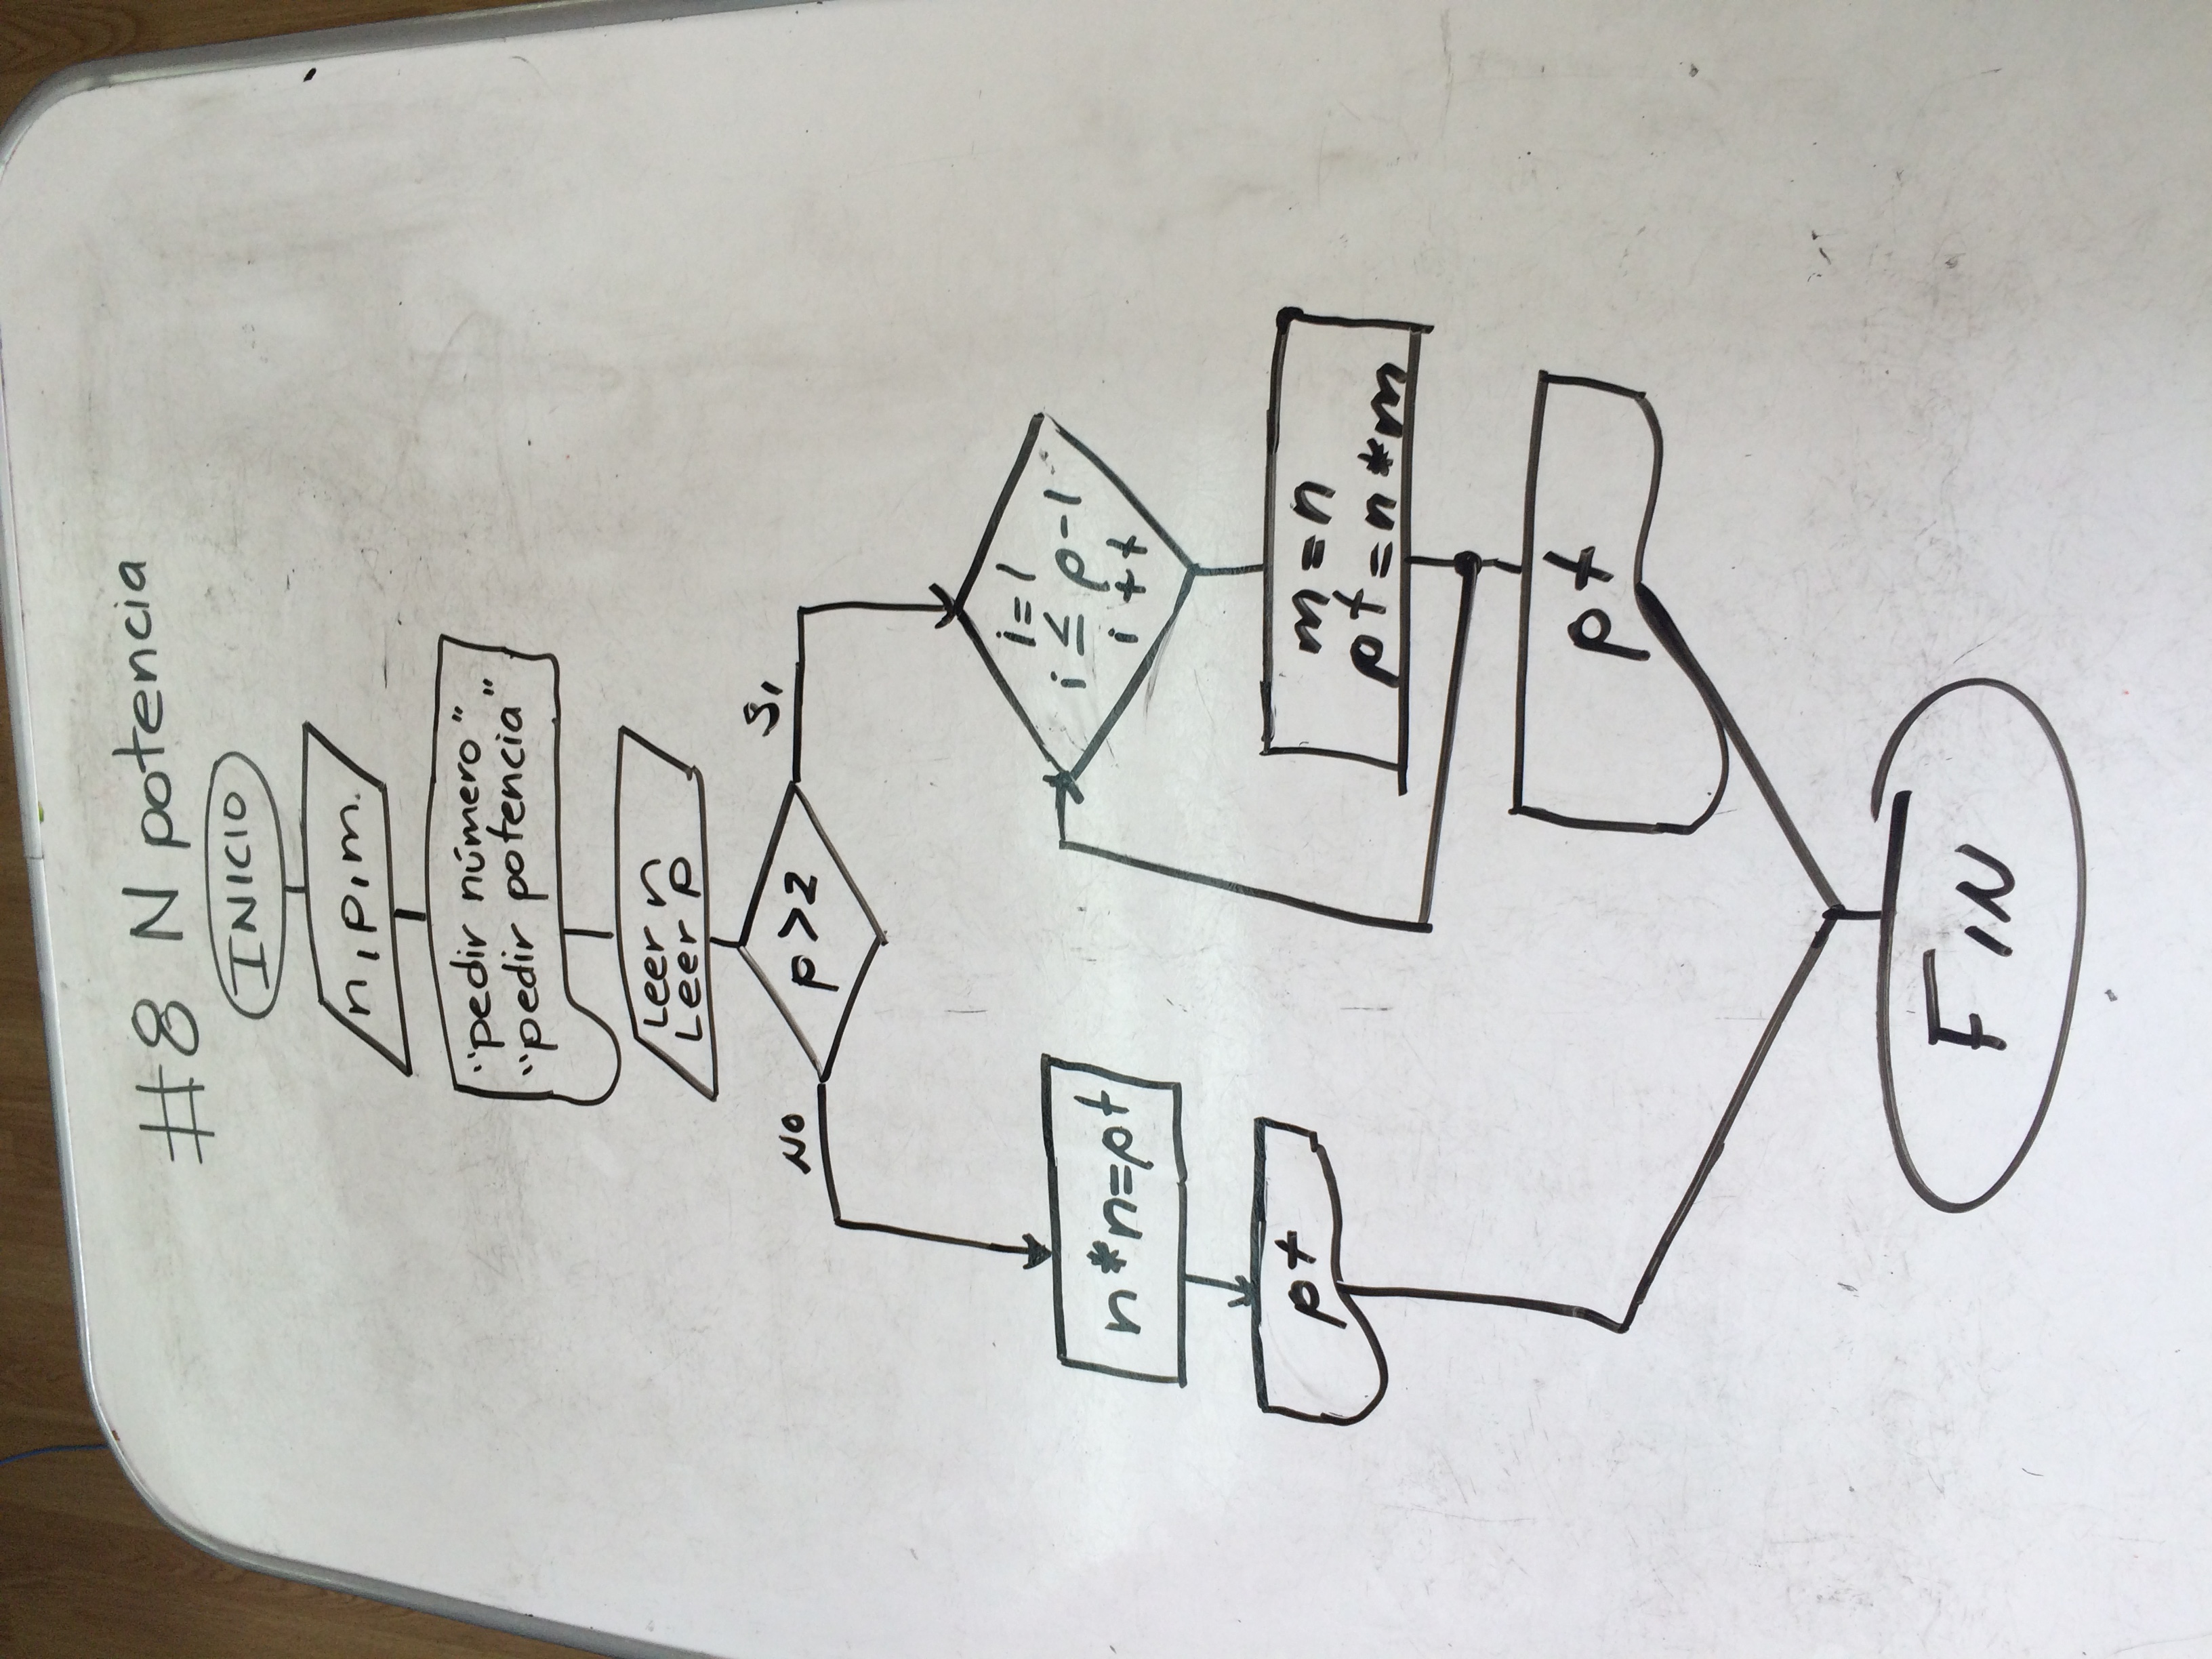 #8 N potencia
INICIO
n, p, m.
"pedir número"
"pedir potencia"
Leer n
Leer p
p>2
NO
Si
i=1
i ≤ p-1
i ++
n*n=pt
pt
m=n
pt=n*m
pt
FIN